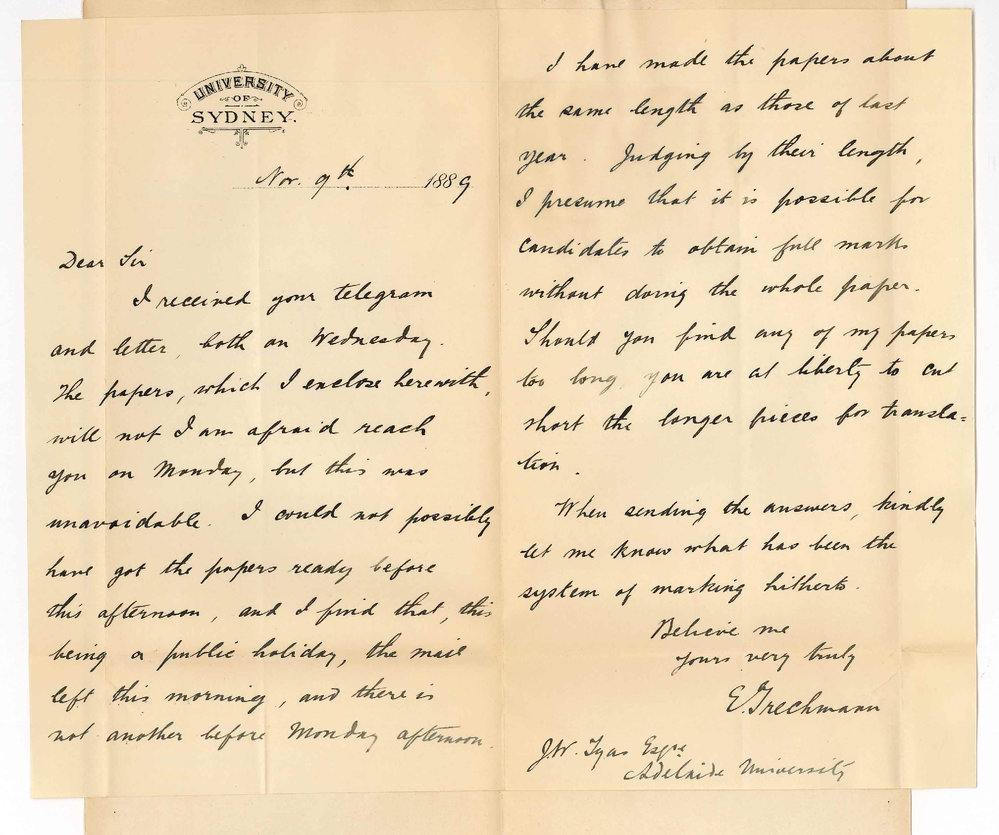 UNIVERSITY
OF
SYDNEY.
Nov. 9th. 1889
Dear Sir
I received your telegram
and letter, both on Wednesday.
The papers, which I enclose herewith,
will not I am afraid reach
you on Monday, but this was
unavoidable. I could not possibly
have got the papers ready before
this afternoon, and I find that, this
being a public holiday, the mail
left this morning, and there is
not another before Monday afternoon.
I have made the papers about
the same length as those of last
year. Judging by their length,
I presume that it is possible for
candidates to obtain full marks
without doing the whole paper.
Should you find any of my papers
too long, you are at liberty to cut
short the longer pieces for transla-
tion.
When sending the answers, kindly
let me know what has been the
system of marking hitherto.
Believe me
yours very truly
E. Trechmann
J.W. Tyas Esqre
Adelaide University